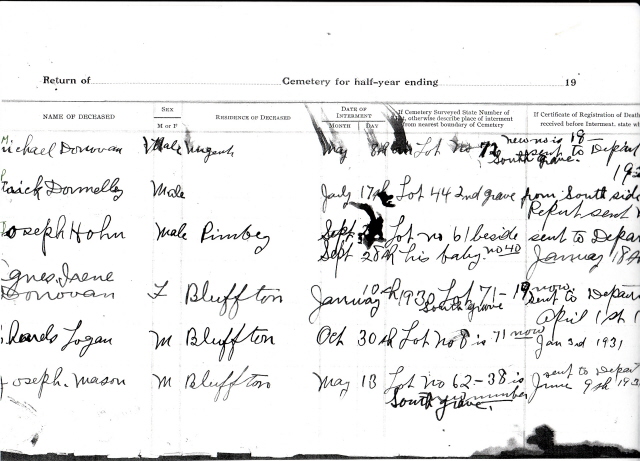 Return of Cemetery for half-year ending 19
NAME OF DECEASED
SEX
M or F
RESIDENCE OF DECEASED
DATE OF INTERMENT
MONTH DAY
If Cemetery Surveyed State Number of
otherwise describe place of interment
from nearest boundary of Cemetery
If Certificate of Registration of Death
received before Interment, state
Michael Donovan Male Nugent May 8 Lot No 72 new no is 18 –
South grave. sent to Depart
Donnelly Male July 17th Lot 44 2nd grave from South side
Report sent
Joseph Hohn Male Rimbey Sept Lot no 61 beside sent to Depar
Sept 28th his baby no 40 January 18th
Agnes Irene
Donovan F Bluffton January 10th 1930 Lot 71 – 19 now
South grove sent to Depar
April 1st 1
Logan M Bluffton Oct 30th Lot No 8 is 71 now Jan 3rd 1931
Joseph. Mason M Bluffton May 13 Lot no 62 – 38 is sent to Depart
number June 9th 193
South grave.